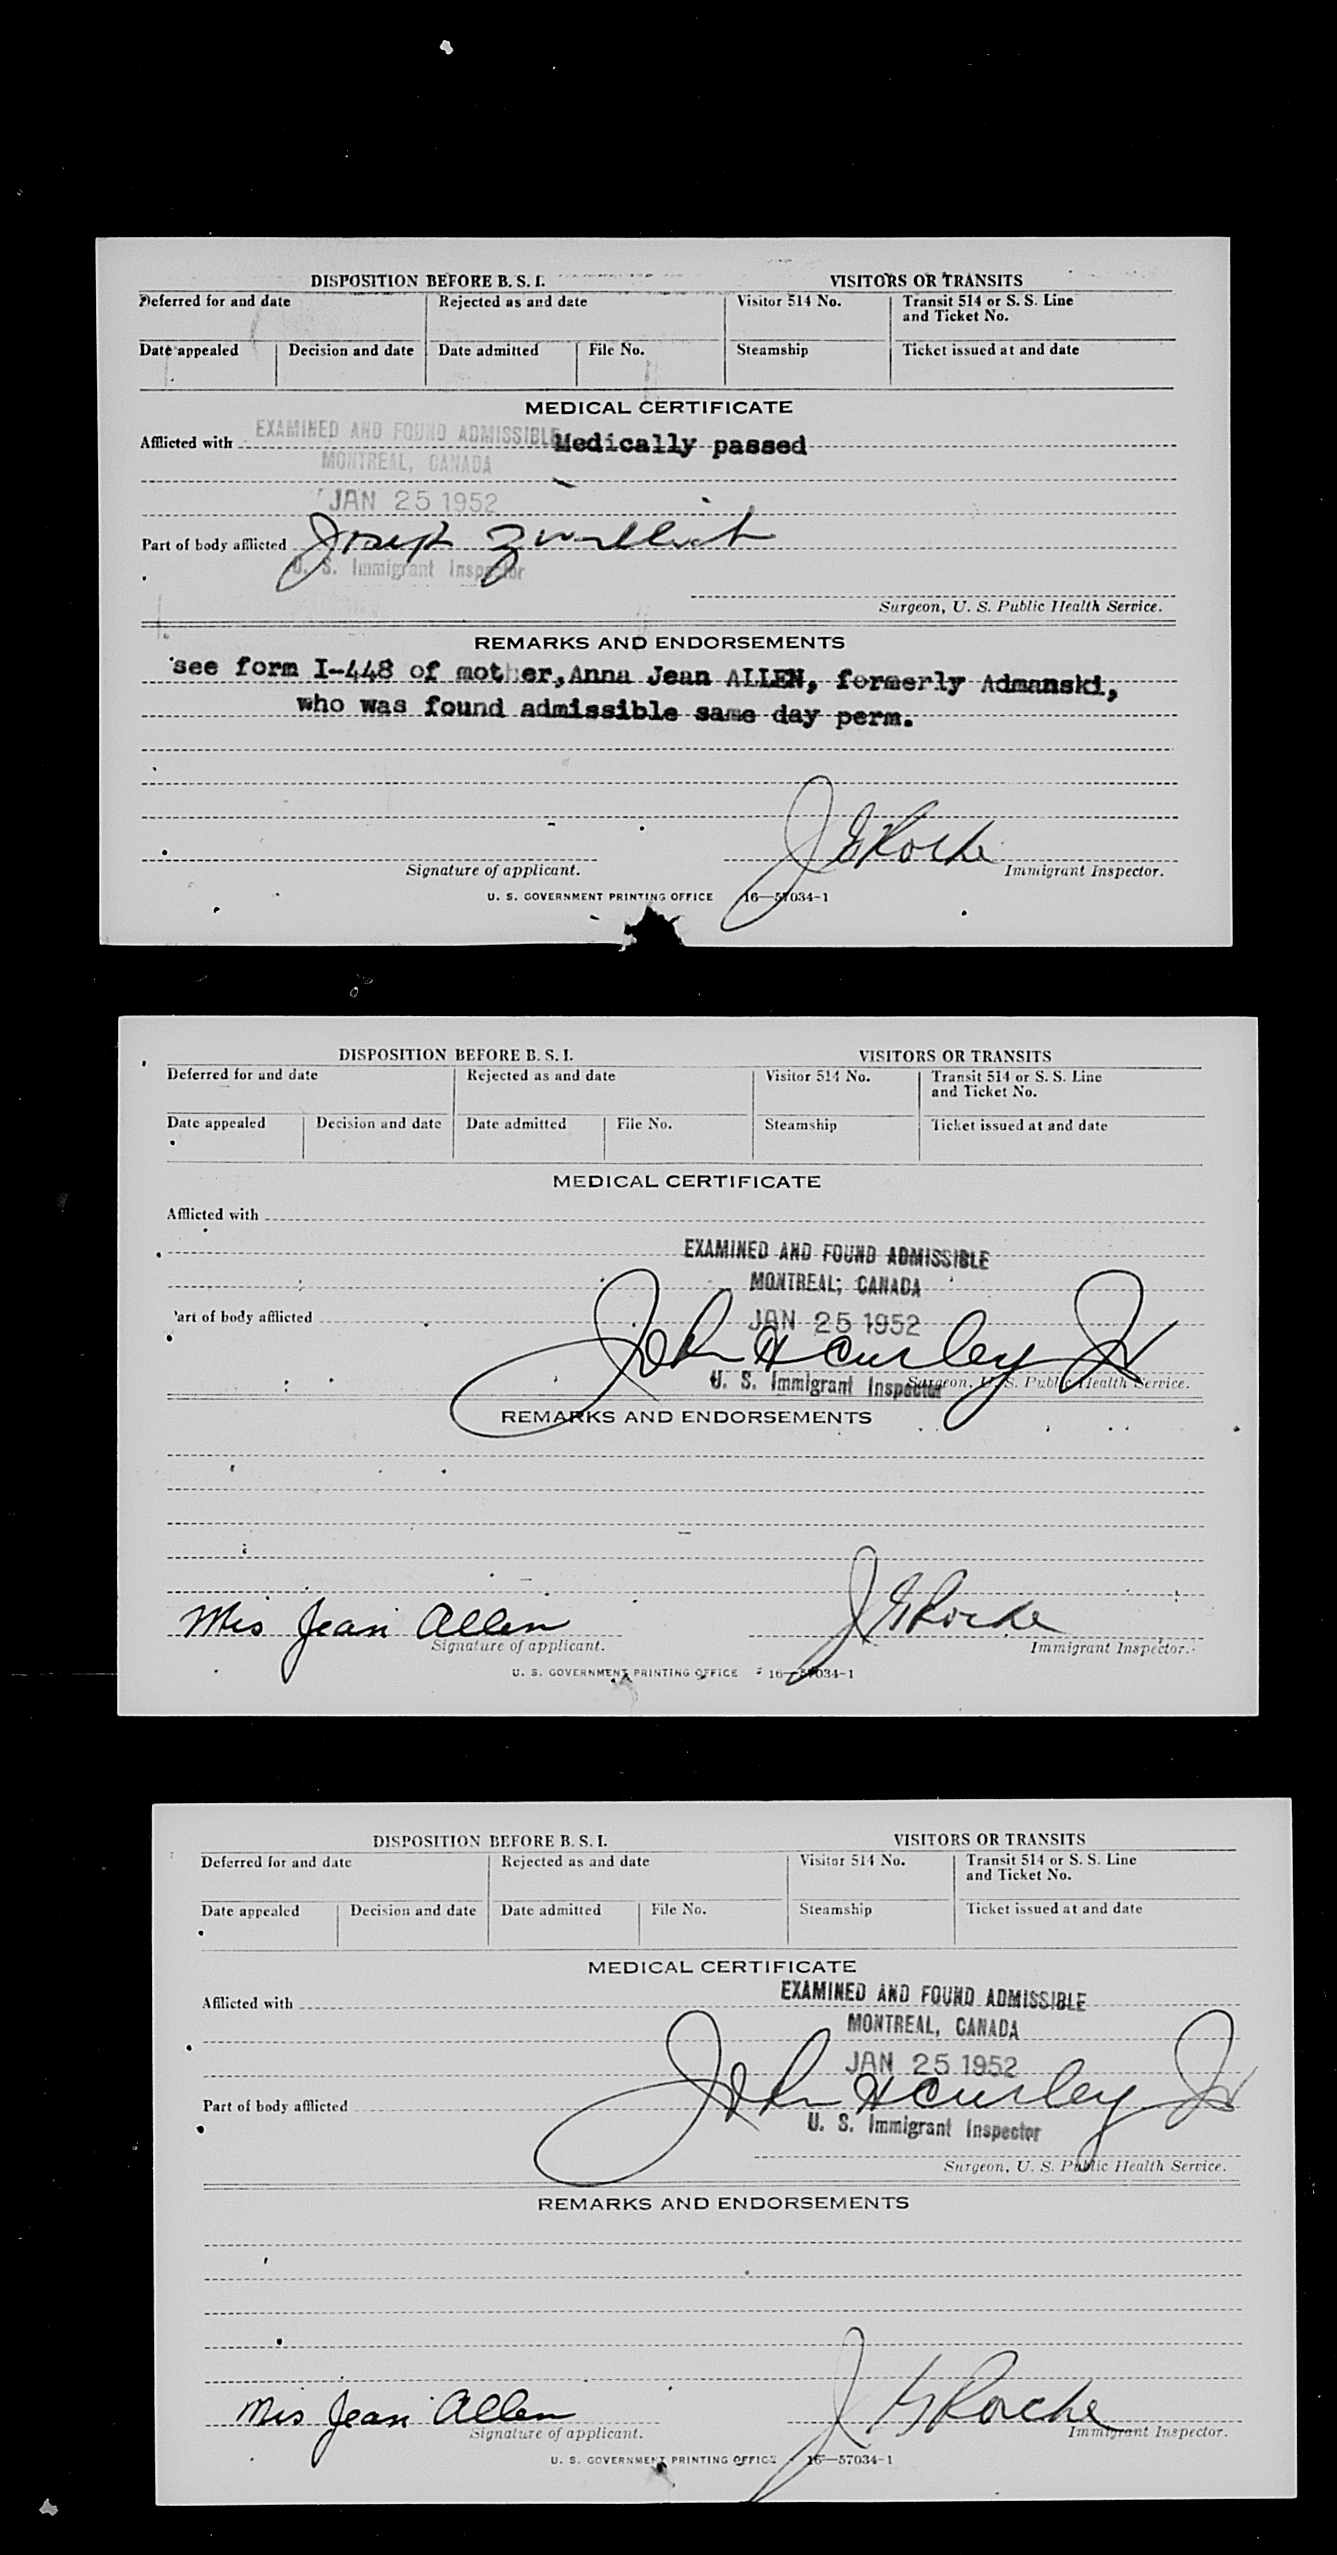 DISPOSITION BEFORE B. S. I. VISITORS OR TRANSITS
Deferred for and date Rejected as and date Visitor 514 No. Transit 514 or S. S. Line
and Ticket No.
Date appealed Decision and date Date admitted File No. Steamship Ticket issued at and date
MEDICAL CERTIFICATE
EXAMINED AND FOUND ADMISSIBLE
Afflicted with Medically passed
MONTREAL, CANADA
JAN 25 1952
Part of body afflicted Joseph
U. S. Immigrant Inspector
Surgeon, U. S. Public Health Service.
REMARKS AND ENDORSEMENTS
see form I-448 of mother, Anna Jean ALLEN, formerly Admanski,
who was found admissible same day perm.
J G Roche
Signature of applicant. Immigrant Inspector.
U. S. GOVERNMENT PRINTING OFFICE 16—57034-1
DISPOSITION BEFORE B. S. I. VISITORS OR TRANSITS
Deferred for and date Rejected as and date Visitor 514 No. Transit 514 or S. S. Line
and Ticket No.
Date appealed Decision and date Date admitted File No. Steamship Ticket issued at and date
MEDICAL CERTIFICATE
Afflicted with
EXAMINED AND FOUND ADMISSIBLE
MONTREAL, CANADA
Part of body afflicted JAN 25 1952
John H Curley Jr
U. S. Immigrant Inspector Surgeon, U. S. Public Health Service.
REMARKS AND ENDORSEMENTS
Mrs Jean Allen J G Roche
Signature of applicant. Immigrant Inspector.
U. S. GOVERNMENT PRINTING OFFICE 16—57034-1
DISPOSITION BEFORE B. S. I. VISITORS OR TRANSITS
Deferred for and date Rejected as and date Visitor 514 No. Transit 514 or S. S. Line
and Ticket No.
Date appealed Decision and date Date admitted File No. Steamship Ticket issued at and date
MEDICAL CERTIFICATE
Afflicted with EXAMINED AND FOUND ADMISSIBLE
MONTREAL, CANADA
JAN 25 1952
Part of body afflicted John H Curley Jr
U. S. Immigrant Inspector
Surgeon, U. S. Public Health Service.
REMARKS AND ENDORSEMENTS
Mrs Jean Allen J G Roche
Signature of applicant. Immigrant Inspector.
U. S. GOVERNMENT PRINTING OFFICE 16—57034-1